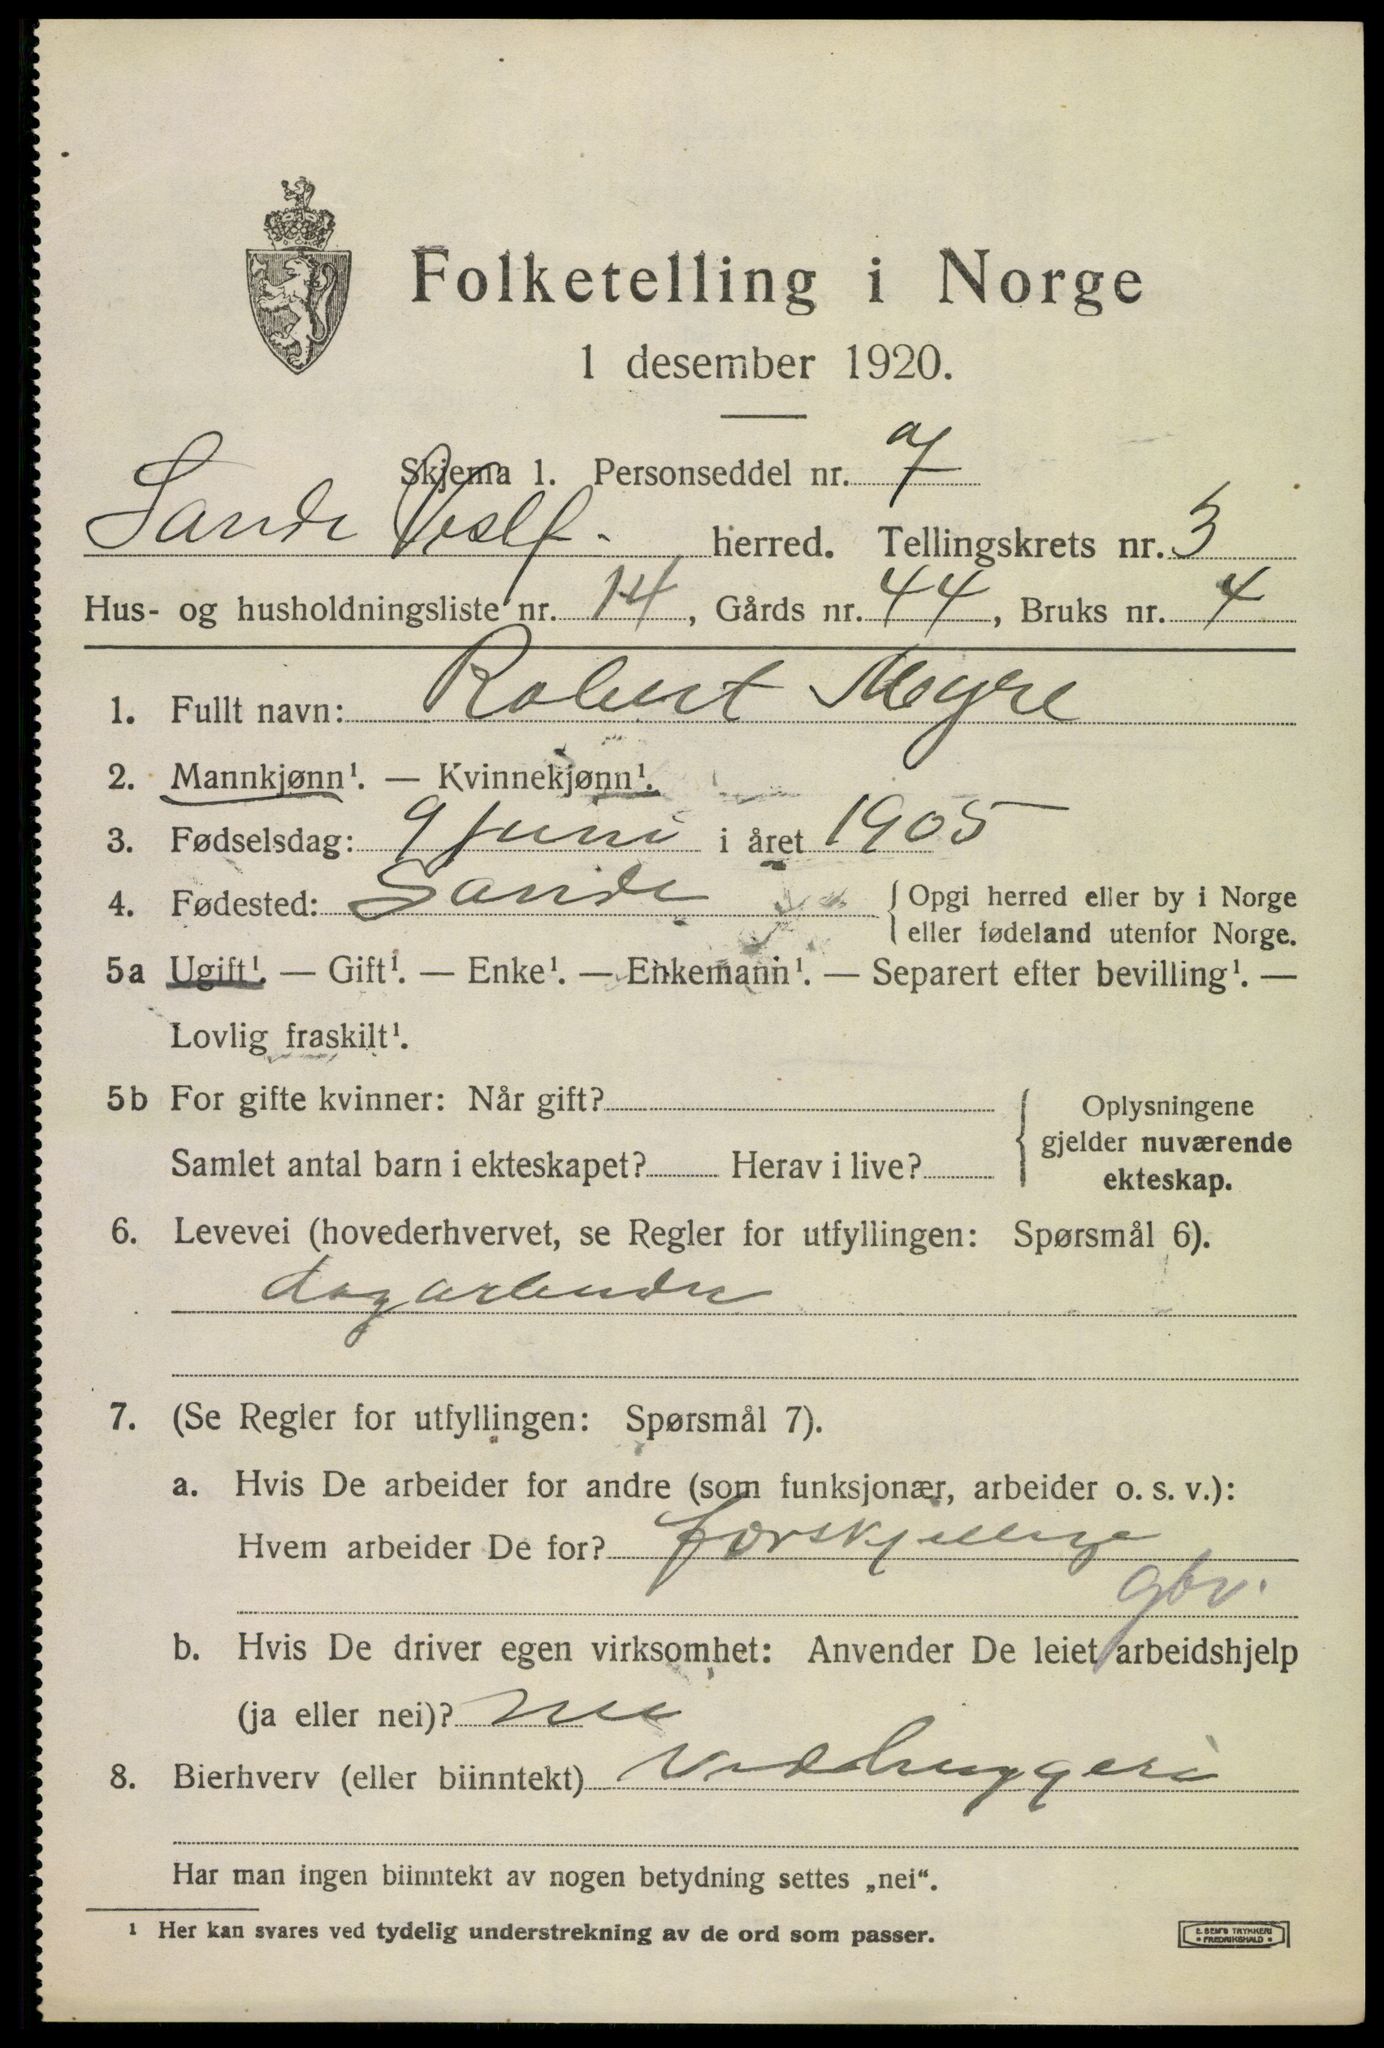 Folketelling i Norge
1 desember 1920.
Skjema 1. Personseddel nr. 7
Sande Vestf. herred. Tellingskrets nr. 3
Hus- og husholdningsliste nr. 14, Gårds nr. 44, Bruks nr. 4
1. Fullt navn: Robert Myre
2. Mannkjønn¹. — Kvinnekjønn¹.
3. Fødselsdag: 9 juni i året 1905
4. Fødested: Sande { Opgi herred eller by i Norge
eller fødeland utenfor Norge.
5a Ugift¹. — Gift¹. — Enke¹. — Enkemann¹. — Separert efter bevilling¹. —
Lovlig fraskilt¹.
5b For gifte kvinner: Når gift?
Samlet antal barn i ekteskapet? Herav i live?
{ Oplysningene
gjelder nuværende
ekteskap.
6. Levevei (hovederhvervet, se Regler for utfyllingen: Spørsmål 6).
dagarbeider
7. (Se Regler for utfyllingen: Spørsmål 7).
a. Hvis De arbeider for andre (som funksjonær, arbeider o. s. v.):
Hvem arbeider De for? forskjellige
gbr.
b. Hvis De driver egen virksomhet: Anvender De leiet arbeidshjelp
(ja eller nei)? nei
8. Bierhverv (eller biinntekt) Vedhuggeri
Har man ingen biinntekt av nogen betydning settes „nei“.
¹ Her kan svares ved tydelig understrekning av de ord som passer.
E. SEM'S TRYKKERI
FREDRIKSHALD